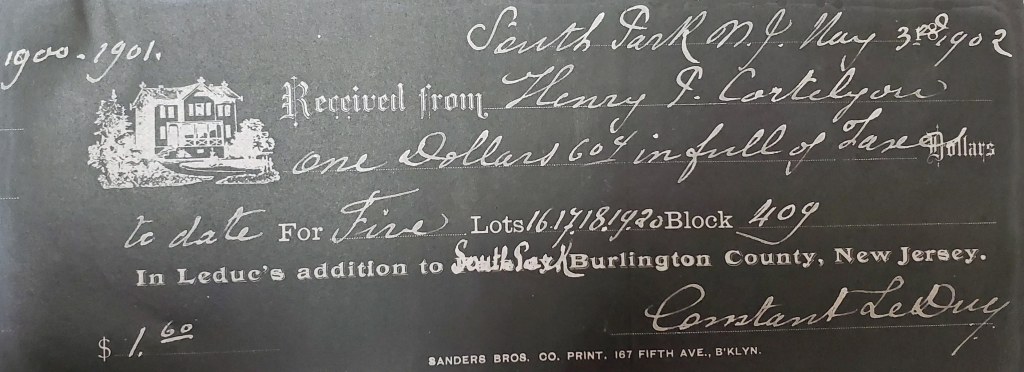 South Park N.J. May 3rd 1902
1900-1901.
Received from Henry P. Cortelyou
one Dollars 60¢ in full of Taxes Dollars
to date For Five Lots 16.17.18.19.20 Block 409
In Leduc's addition to South Park Burlington County, New Jersey.
Constant LeDuc
$ 1.60
SANDERS BROS. CO. PRINT. 167 FIFTH AVE., B'KLYN.